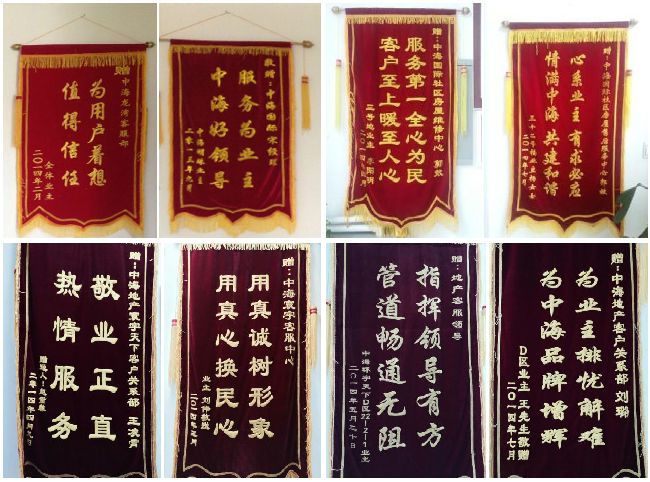 赠:中海龙湾客服部
为用户着想
值得信任
全体业主
二〇一四年二月
敬赠:中海国际
服务为业主
中海好领导
二〇一三年九月
赠:中海国际社区房屋维修中心
服务第一全心为民
客户至上暖至人心
心系业主有求必应
情满中海共建和谐
赠:中海地产寰宇天下客户关系部
敬业正直
热情服务
二〇一四年四月
赠:中海寰宇客服中心
用真诚树形象
用真心换民心
业主
赠:地产客服领导
指挥领导有方
管道畅通无阻
中海寰宇天下D区22-2-1业主
二〇一四年五月二十日
赠:中海地产客户关系部 刘翀
为业主排忧解难
为中海品牌增辉
D区业主 王先生敬赠
二〇一四年七月